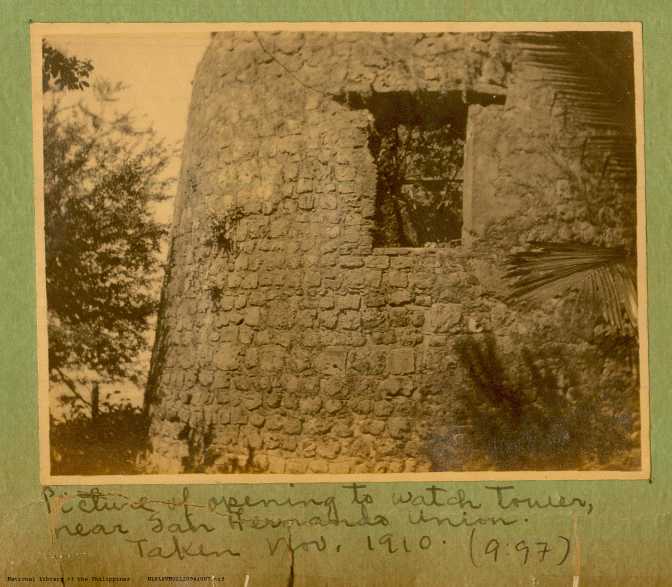 Picture of opening to watch tower,
near San Hernando Union.
Taken Nov. 1910. (9:97)
National Library of the Philippines